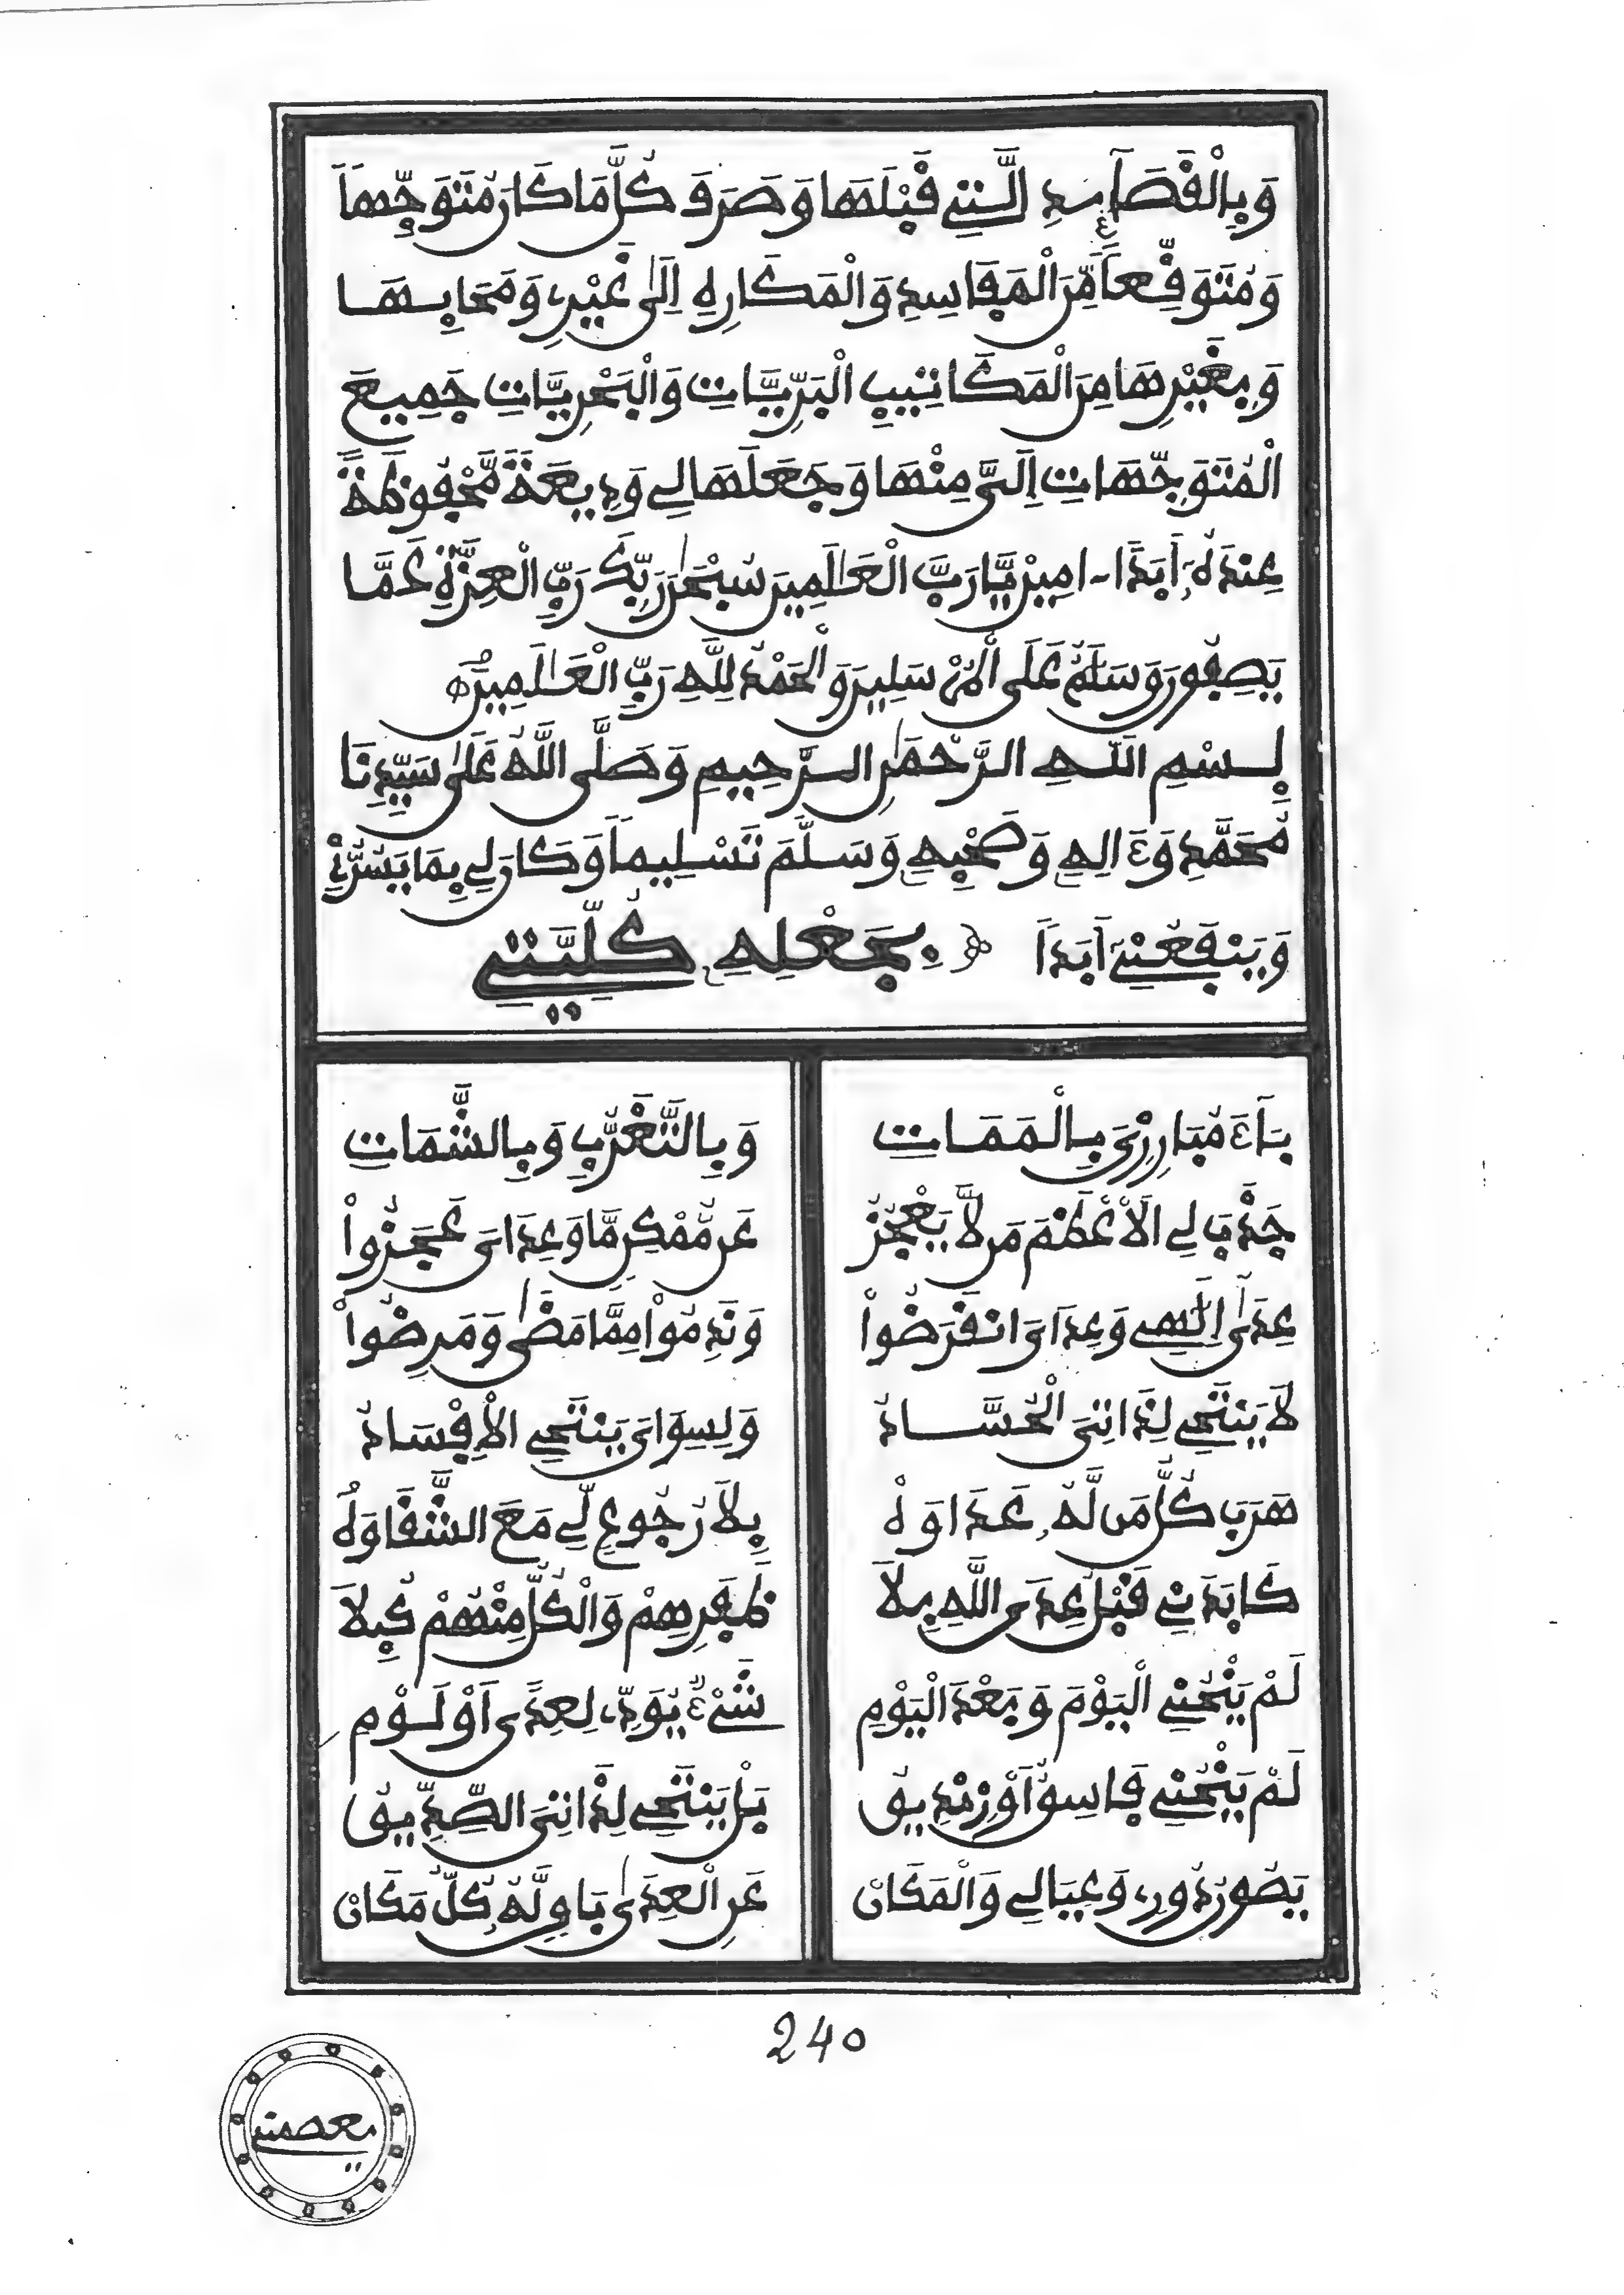 وَبِالْقَصَآئِدِ الَّتِي قَبْلَهَا وَصَرَفَ كُلَّ مَا كَانَ مُتَوَجِّهاً
وَمُتَوَقِّعاً مِّنَ الْمَفَاسِدِ وَالْمَكَارِهِ إِلَىٰ غَيْرِي وَمَحَا بِهَا
وَبِغَيْرِهَا مِنَ الْمَكَاتِيبِ الْبَرِّيَّاتِ وَالْبَحْرِيَّاتِ جَمِيعَ
الْمُتَوَجِّهَاتِ إِلَيَّ مِنْهَا وَجَعَلَهَا لِي وَدِيعَةً مَّحْفُوظَةً
عِندَهُ أَبَدًا ـ امِينَ يَّا رَبَّ الْعَـٰلَمِينَ سُبْحَٰنَ رَبِّكَ رَبِّ الْعِزَّةِ عَمَّا
يَصِفُونَ وَسَلَٰمٌ عَلَى الْمُرْسَلِينَ وَالْحَمْدُ لِلَّهِ رَبِّ الْعَـٰلَمِينَ
بِسْمِ اللَّهِ الرَّحْمَٰنِ الرَّحِيمِ وَصَلَّى اللَّهُ عَلَىٰ سَيِّدِنَا
مُحَمَّدٍ وَءَالِهِ وَصَحْبِهِ وَسَلَّمَ تَسْلِيماً وَكَانَ لِي بِمَا يَسُرُّنِي
وَيَنْفَعُنِي أَبَداً بِجَعْلِهِ كُلِّيَّتِي
بَآءَ مُبَارِزِيَ بِالْمَمَاتِ
وَبِالتَّغَرُّبِ وَبِالشَّمَاتِ
جَذْبَ لِي الْأَعْظَمَ مَن لَّا يَعْجُزُ
عَن مُّمْكِنٍ مَّا وَعِدَايَ عَجَزُواْ
عِدَىٰ إِلَٰهِي وَعِدَايَ انقَرَضُواْ
وَنَدِمُواْ مِمَّا مَضَىٰ وَمَرِضُواْ
لَا يَنتَحِي لِذَاتِيَ الْحُسَّادُ
وَلِسِوَايَ يَنتَحِي الْإِفْسَادُ
هَرَبَ كُلُّ مَن لَّهُ عَدَاوَهْ
بِلَا رُجُوعٍ لِّي مَعَ الشَّقَاوَهْ
كَابَدَنِي قَبْلُ عِدَى اللَّهِ بِلَا
ظَفَرِهِمْ وَالْكُلُّ مِنْهُمْ كُبِلَا
لَمْ يَنْحُنِي الْيَوْمَ وَبَعْدَ الْيَوْمِ
شَيْءٌ يُوَدِّي لِعِدًى أَوْ لَوْمِ
لَمْ يَنْحُنِي فَاسِقٌ أَوْ زِنْدِيقُ
بَلْ يَنتَحِي لِذَاتِيَ الصِّدِّيقُ
يَصُونُ دُورِي وَعِيَالِي وَالْمَكَانْ
عَنِ الْعِدَىٰ بَاقٍ لَّهُ كُلُّ مَكَانْ
240
يعصمني